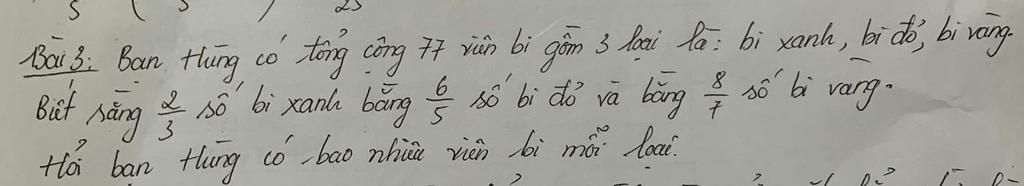 Bài 3: Bạn Hùng có tổng cộng 77 viên bi gồm 3 loại là: bi xanh, bi đỏ, bi vàng.
Biết rằng 2/3 số bi xanh bằng 6/5 số bi đỏ và bằng 8/7 số bi vàng.
Hỏi bạn Hùng có bao nhiêu viên bi mỗi loại.